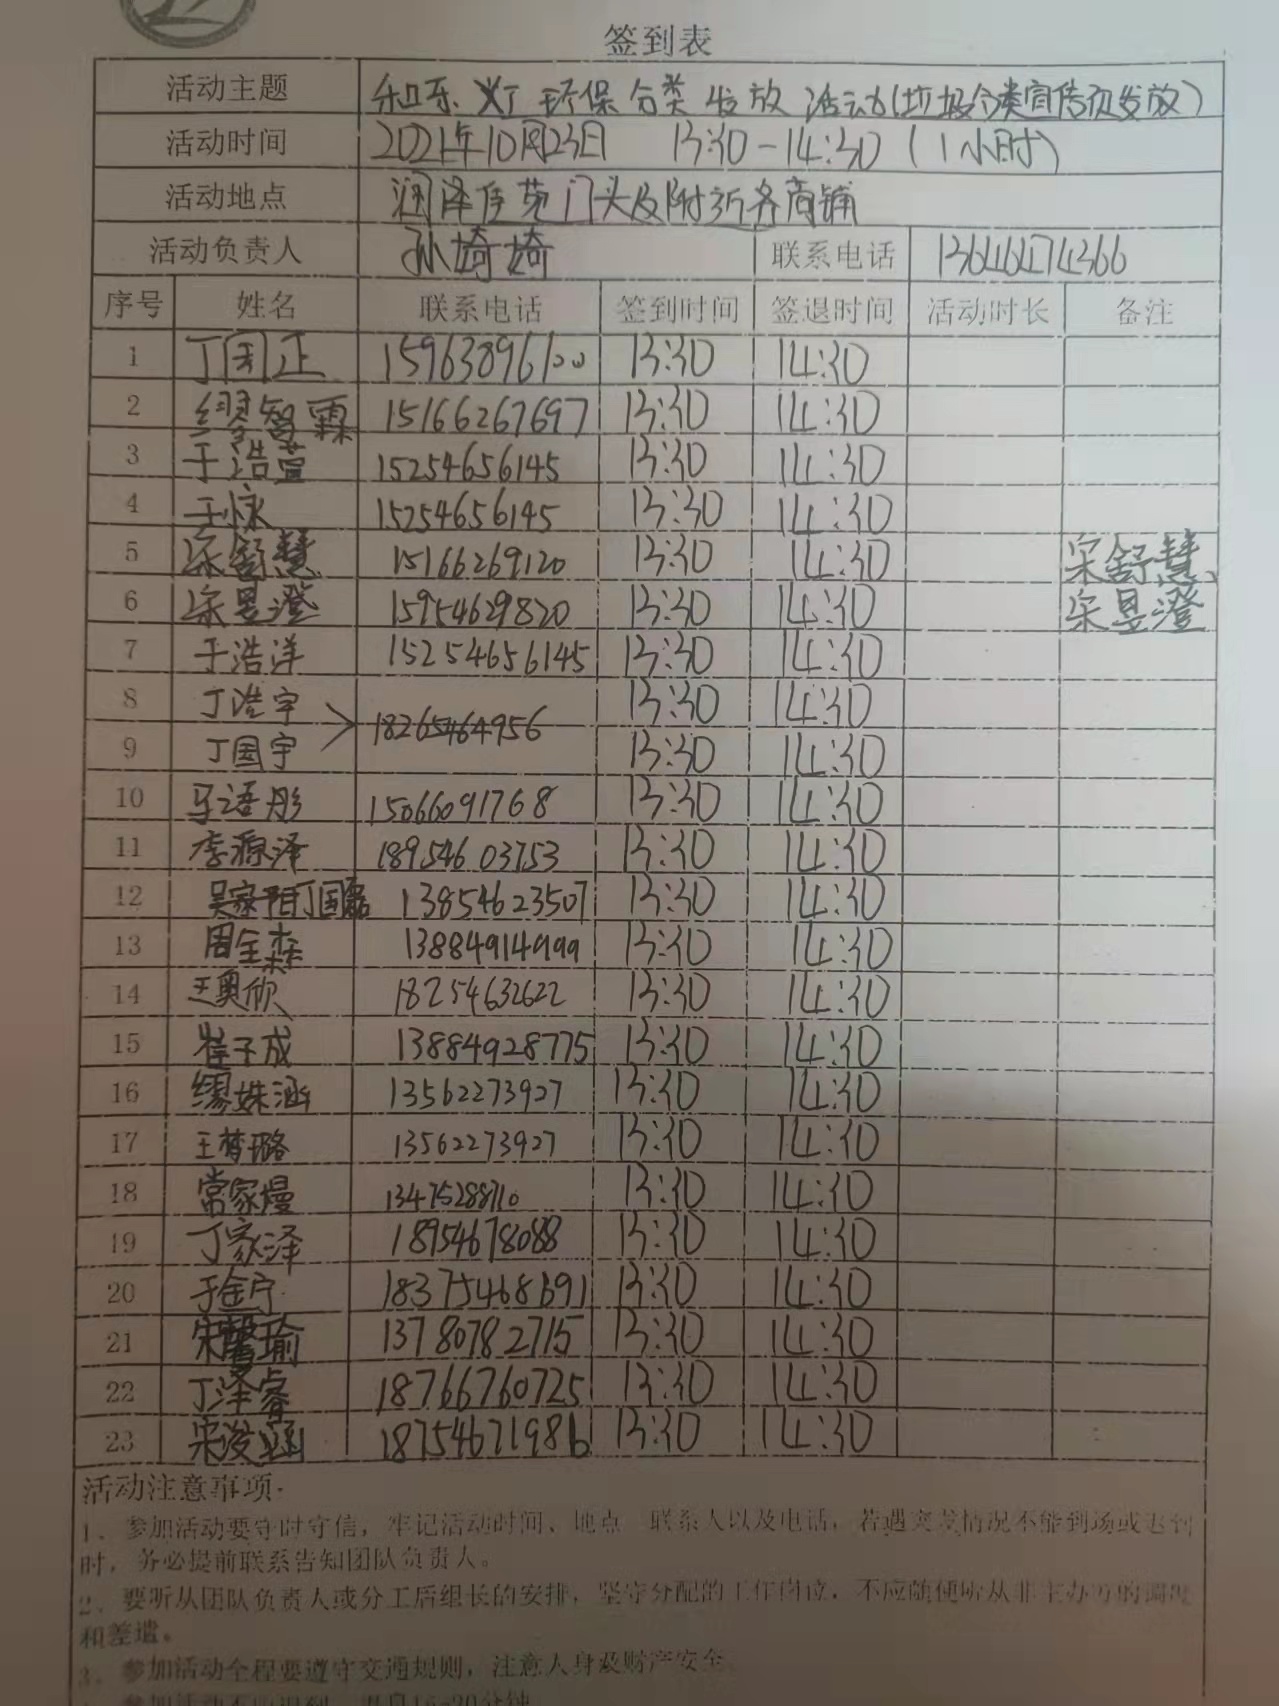 签到表
活动主题 环保分类发放活动(垃圾分类宣传页发放)
活动时间 2021年10月23日 13:30-14:30 (1小时)
活动地点 润泽佳苑门头及附近各商铺
活动负责人 孙埼埼 联系电话 13646474366
序号 姓名 联系电话 签到时间 签退时间 活动时长 备注
1 丁国正 15963896100 13:30 14:30
2 缪智霖 15166267697 13:30 14:30
3 于浩萱 15254656145 13:30 14:30
4 于咏 15254656145 13:30 14:30
5 宋舒慧 15166269120 13:30 14:30 宋舒慧
6 宋昱澄 15954629820 13:30 14:30 宋昱澄
7 于浩洋 15254656145 13:30 14:30
8 丁浩宇 18265464956 13:30 14:30
9 丁国宇 13:30 14:30
10 马语彤 15066091768 13:30 14:30
11 李源泽 18954603753 13:30 14:30
12 吴家阳丁国磊 13854623507 13:30 14:30
13 周全森 13884914999 13:30 14:30
14 王奥欣 18254632622 13:30 14:30
15 崔子成 13884928775 13:30 14:30
16 缪姝涵 13562273927 13:30 14:30
17 王梦璐 13562273927 13:30 14:30
18 常家熳 13475288710 13:30 14:30
19 丁家泽 18954678088 13:30 14:30
20 于金宁 18375468691 13:30 14:30
21 宋馨瑜 13780782715 13:30 14:30
22 丁泽睿 18766760725 13:30 14:30
23 宋浚涵 18754671986 13:30 14:30
活动注意事项:
1、参加活动要守时守信，牢记活动时间、地点、联系人以及电话，若遇突发情况不能到场或迟到
时，务必提前联系告知团队负责人。
2、要听从团队负责人或分工后组长的安排，坚守分配的工作岗位，不应随便听从非主办方的调度
和差遣。
3、参加活动全程要遵守交通规则，注意人身及财产安全。